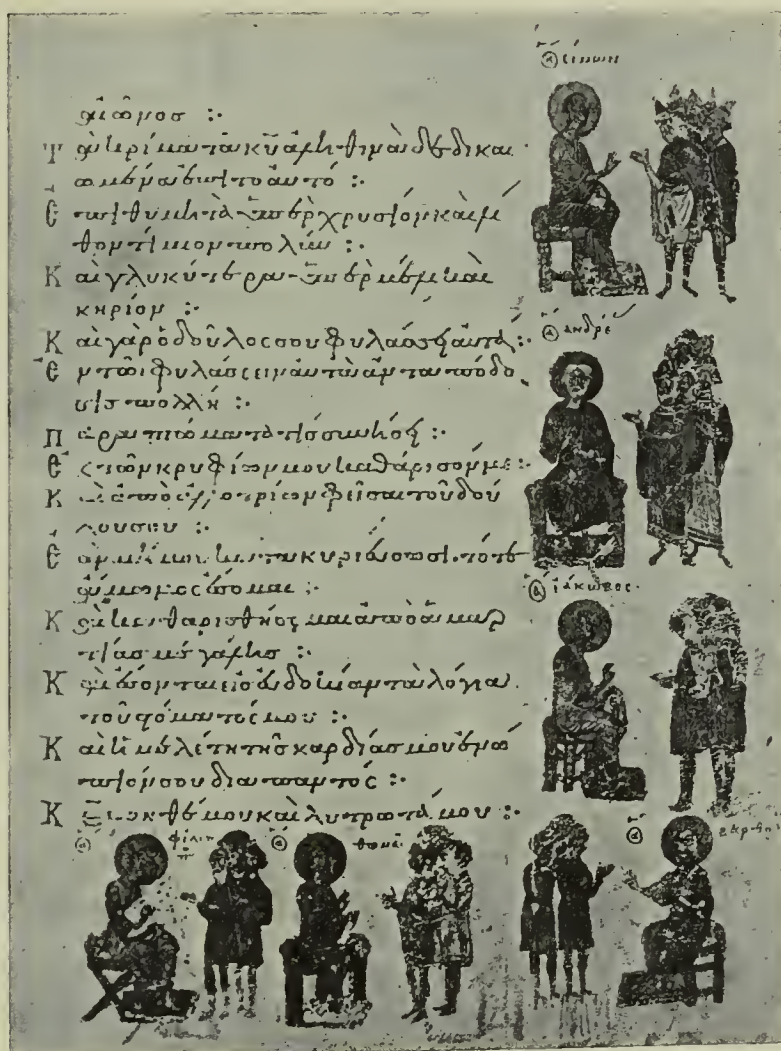 αἰῶνος :·
Τὰ κρίματα κ͞υ ἀληθινὰ δεδικαι
ωμένα ἐπὶ τὸ αὐτό :·
Ἐπιθυμητὰ ὑπὲρ χρυσίον καὶ λί
θον τίμιον πολύν :·
Καὶ γλυκύτερα ὑπὲρ μέλι καὶ
κηρίον :·
Καὶ γὰρ ὁ δοῦλος σου φυλάσσει αὐτά :·
Ἐν τῶι φυλάσσειν αὐτὰ ἀνταπόδο
σις πολλή :·
Παραπτώματα τίς συνήσει :·
Ἐκ τῶν κρυφίων μου καθάρισόν με :·
Κ ἀπὸ ἀλλοτρίων φεῖσαι τοῦ δού
λου σου :·
Ἐὰν μή μου κατακυριεύσωσι· τότε
ἄμωμος ἔσομαι :·
Καὶ καθαρισθήσομαι ἀπὸ ἁμαρ
τίας μεγάλης :·
Καὶ ἔσονται εἰς εὐδοκίαν τὰ λόγια
τοῦ στόματός μου :·
Καὶ ἡ μελέτη τῆς καρδίας μου ἐνώ
πιόν σου διαπαντός :·
Κ͞ε βοηθέ μου καὶ λυτρωτά μου :·
ⓐ σίμων
ⓐ ἀνδρέ
ⓐ ἰάκωβος
ⓐ φίλιπ
ⓐ θωμᾶ
ⓐ